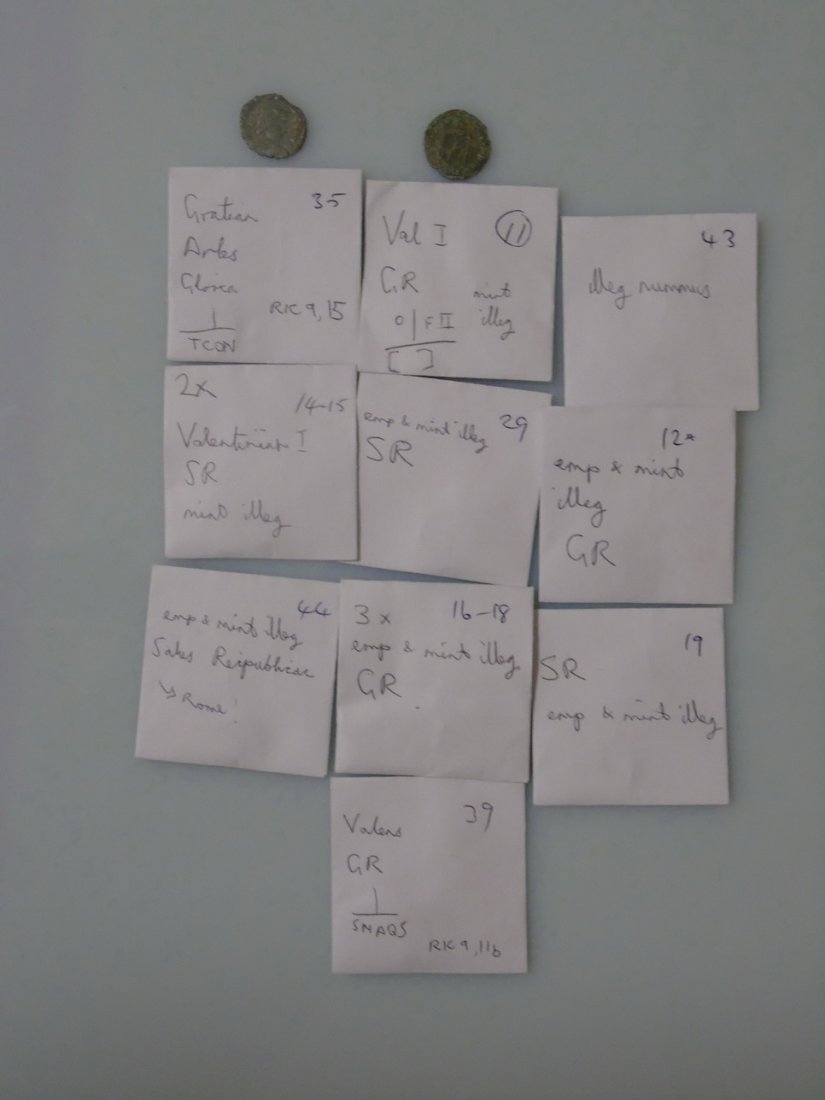 35
Gratian
Arles
Gloria
RIC 9, 15
TCON
Val I
11
GR
mint
illeg
O | F II
[ ]
43
illeg nummus
2x
14-15
Valentinian I
SR
mint illeg
emp & mint illeg
29
SR
12*
emp & mint
illeg
GR
44
emp & mint illeg
Salus Reipublicae
Rome!
3x
16-18
emp & mint illeg
GR
19
SR
emp & mint illeg
39
Valens
GR
SMAQS
RIC 9, 11b